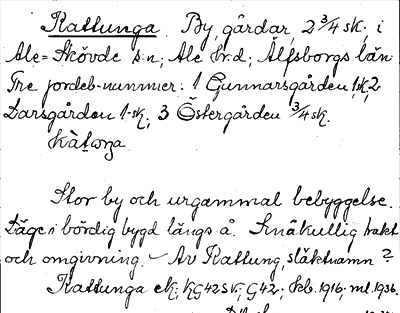 Kattunga. By, gårdar, 2 3/4 sk, i
Ale-Skövde sn; Ale hrd; Älfsborgs län
Tre jordeb-nummer: 1 Gunnarsgården 1sk, 2
Larsgården 1-sk, 3 Östergården 3/4 sk.
kàtoŋa
Stor by och urgammal bebyggelse.
Läge i bördig bygd längs å. Småkullig trakt
och omgivning. — Av Kattung, släktnamn?
Kattunga ek; KG42SV; G42; kb. 1916; ml. 1936.